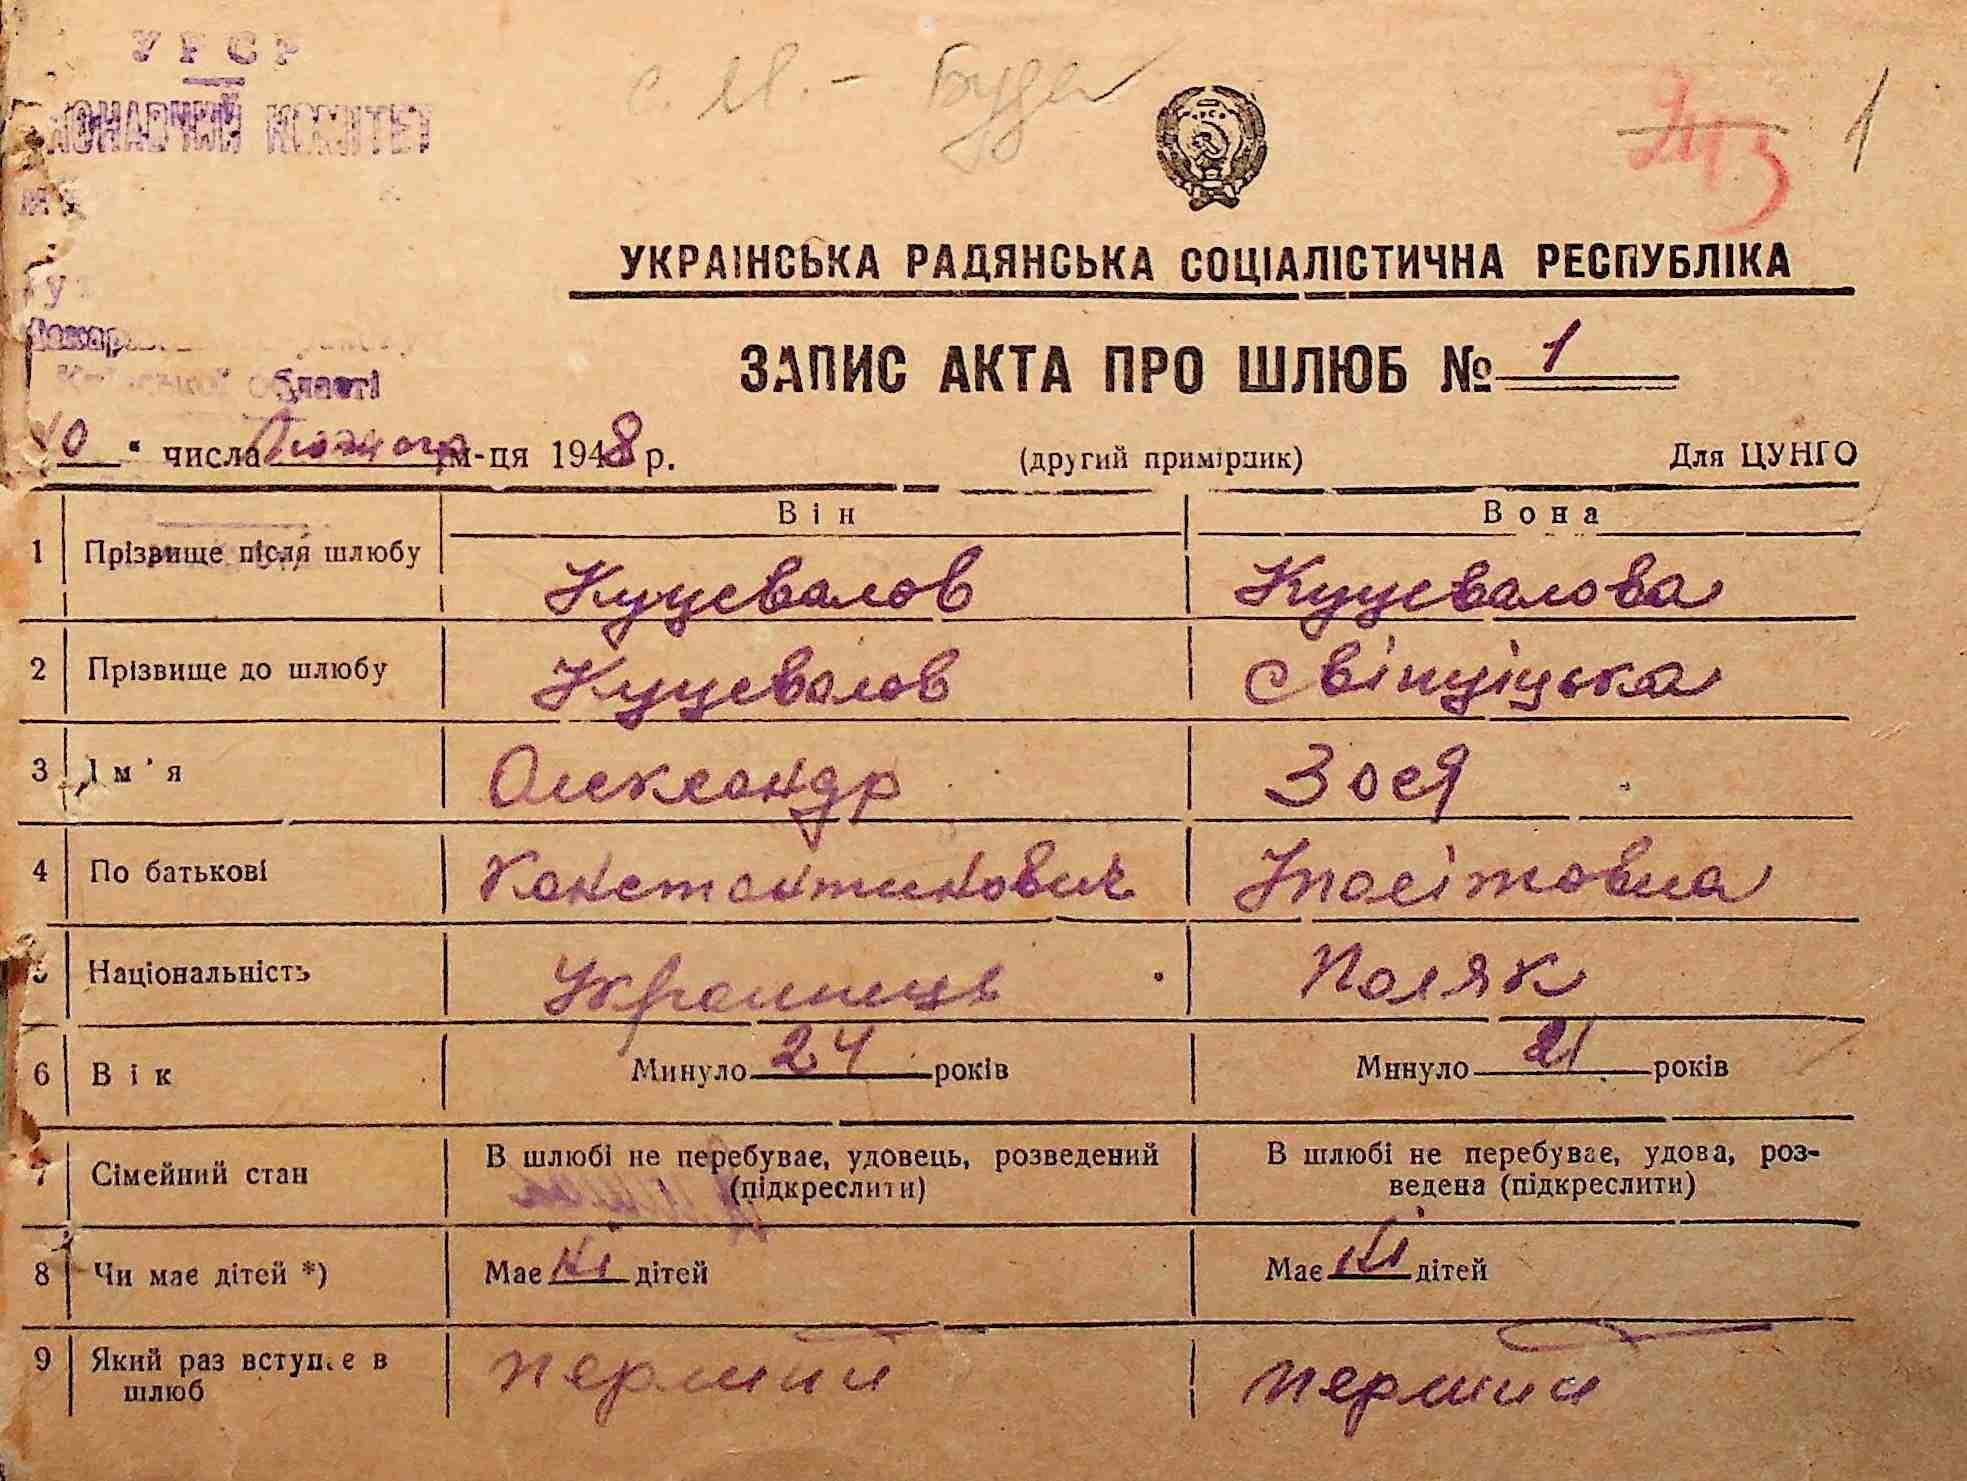 УРСР
с. М. - Буда
КОМІТЕТ
243 1
УКРАЇНСЬКА РАДЯНСЬКА СОЦІАЛІСТИЧНА РЕСПУБЛІКА
ЗАПИС АКТА ПРО ШЛЮБ № 1
області
10 " числа Лютого м-ця 1948 р. (другий примірник) Для ЦУНГО
Він Вона
1 Прізвище після шлюбу Куцевалов Куцевалова
2 Прізвище до шлюбу Куцевалов Свінціцька
3 Ім'я Олександр Зося
4 По батькові Константинович Іполітовна
5 Національність Украинець Поляк
6 Вік Минуло 24 років Минуло 21 років
7 Сімейний стан В шлюбі не перебуває, удовець, розведений (підкреслити) В шлюбі не перебуває, удова, роз-
ведена (підкреслити)
8 Чи має дітей *) Має ні дітей Має ні дітей
9 Який раз вступає в шлюб перший перший